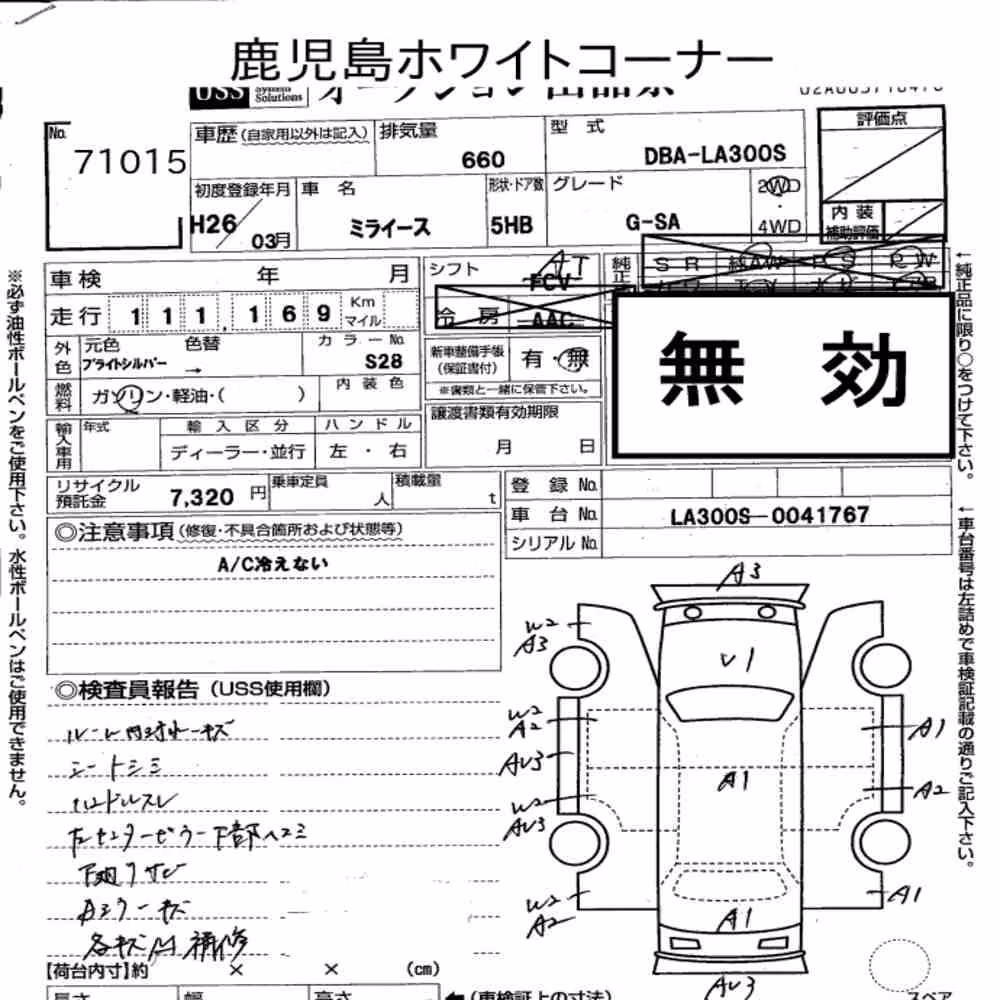 鹿児島ホワイトコーナー
USS System Solutions オークション出品票
No. 71015
車歴(自家用以外は記入) 排気量 660 型式 DBA-LA300S 評価点
初度登録年月 H26 03月 車名 ミライース 形状・ドア数 5HB グレード G-SA 2WD・4WD
内装補助評価
車検 年 月 シフト AT FCV 純正 SR 純AW PS PW
走行 111,169 Km マイル 冷房 AAC
無効
外色 元色 ブライトシルバー 色替 → カラーNo. S28
新車整備手帳(保証書付) 有・無
※書類と一緒に保管下さい。
燃料 ガソリン・軽油・( ) 内装色
譲渡書類有効期限 月 日
輸入車用 年式 輸入区分 ディーラー・並行 ハンドル 左・右
リサイクル預託金 7,320円 乗車定員 人 積載量 t
登録No.
車台No. LA300S-0041767
シリアルNo.
◎注意事項(修復・不具合箇所および状態等)
A/C冷えない
◎検査員報告(USS使用欄)
ルーム内張キズ
シートシミ
ハンドルスレ
左センターピラー下部ヘコミ
下廻りサビ
Aミラーキズ
各キズ凹補修
A3
W2
A3
U1
W2
A2
AU3
A1
A1
W2
AU3
A2
W2
A2
A1
A1
AU3
【荷台内寸】約 × × (cm)
長さ 幅 高さ (車検証上の寸法)
スペア
※必ず油性ボールペンをご使用下さい。水性ボールペンはご使用できません。
↑純正品に限り○をつけて下さい。
↑車台番号は左詰めで車検証記載の通りご記入下さい。